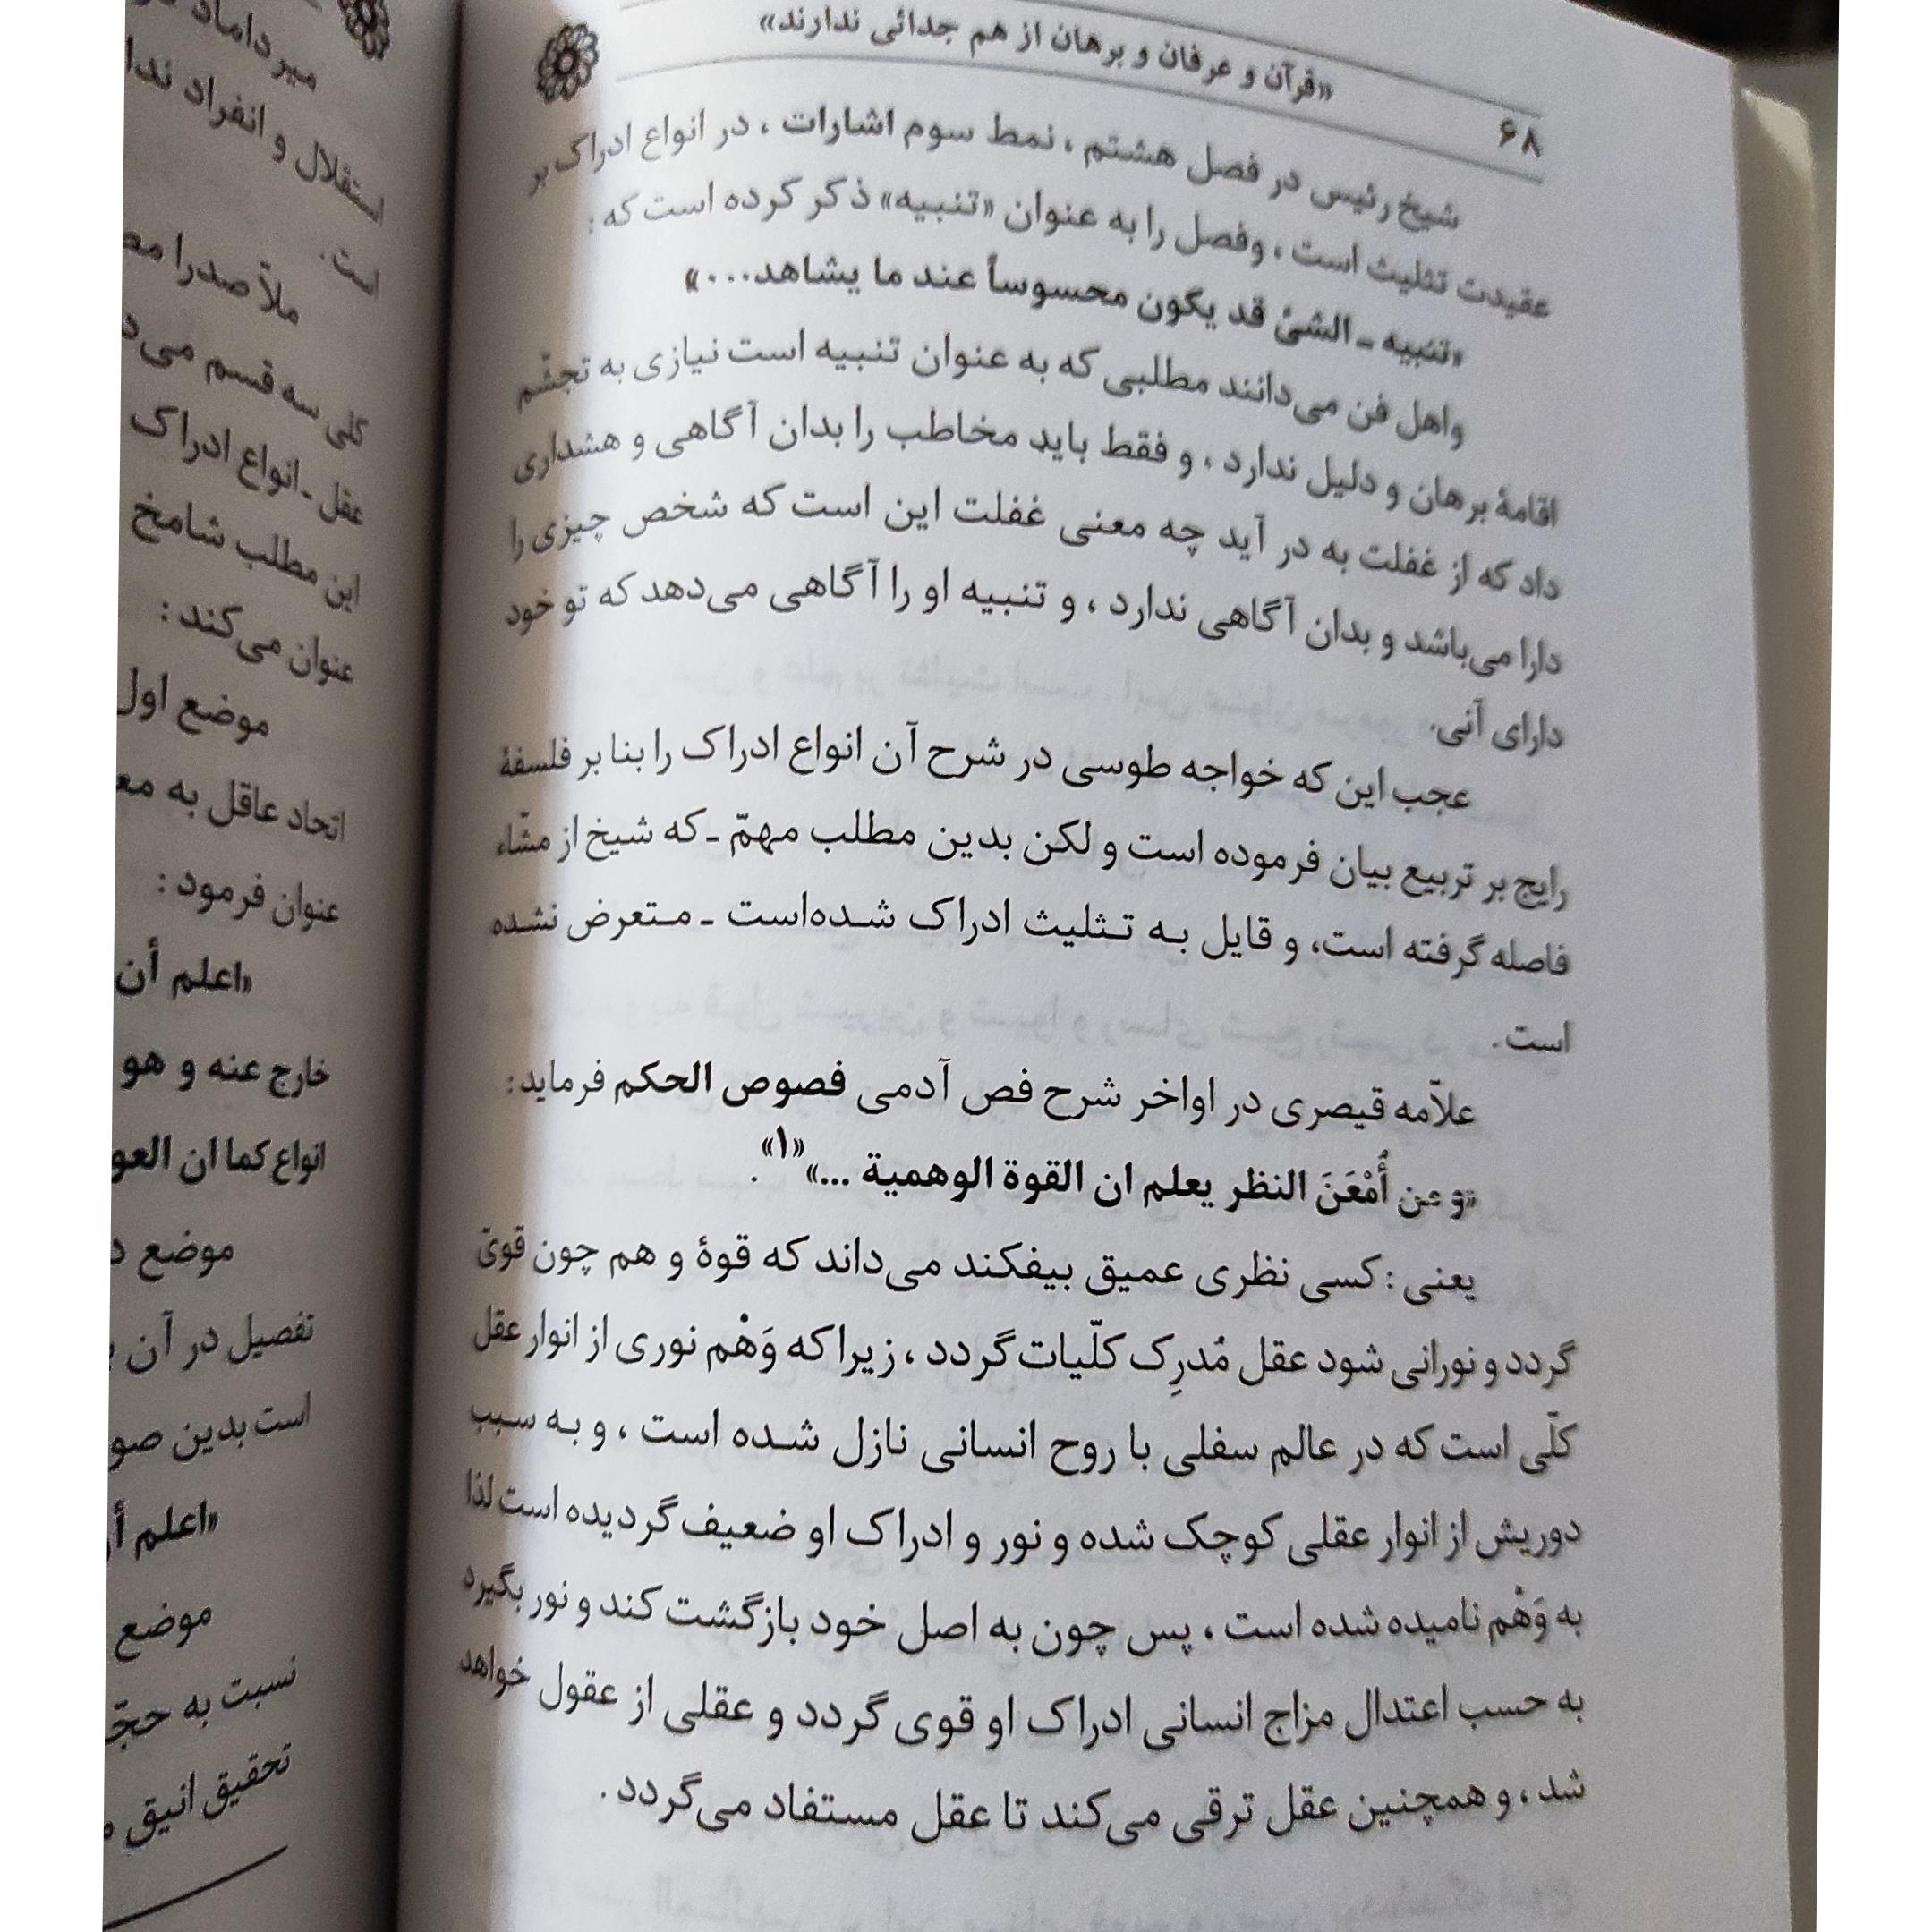 «قرآن و عرفان و برهان از هم جدائی ندارند»
۶۸
شیخ رئیس در فصل هشتم ، نمط سوم اشارات ، در انواع ادراک بر
عقیدت تثلیث است ، وفصل را به عنوان «تنبیه» ذکر کرده است که :
«تنبیه ـ الشئ قد یکون محسوساً عند ما یشاهد...»
واهل فن می‌دانند مطلبی که به عنوان تنبیه است نیازی به تجشّم
اقامهٔ برهان و دلیل ندارد ، و فقط باید مخاطب را بدان آگاهی و هشداری
داد که از غفلت به در آید چه معنی غفلت این است که شخص چیزی را
دارا می‌باشد و بدان آگاهی ندارد ، و تنبیه او را آگاهی می‌دهد که تو خود
دارای آنی.
عجب این که خواجه طوسی در شرح آن انواع ادراک را بنا بر فلسفهٔ
رایج بر تربیع بیان فرموده است و لکن بدین مطلب مهمّ ـ که شیخ از مشّاء
فاصله گرفته است، و قایل به تثلیث ادراک شده‌است ـ متعرض نشده
است.
علاّمه قیصری در اواخر شرح فص آدمی فصوص الحکم فرماید:
«و من أُمْعَنَ النظر یعلم ان القوة الوهمیة ...»«۱».
یعنی : کسی نظری عمیق بیفکند می‌داند که قوهٔ و هم چون قویّ
گردد و نورانی شود عقل مُدرِک کلّیات گردد ، زیرا که وَهْم نوری از انوار عقل
کلّی است که در عالم سفلی با روح انسانی نازل شده است ، و به سبب
دوریش از انوار عقلی کوچک شده و نور و ادراک او ضعیف گردیده است لذا
به وَهْم نامیده شده است ، پس چون به اصل خود بازگشت کند و نور بگیرد
به حسب اعتدال مزاج انسانی ادراک او قوی گردد و عقلی از عقول خواهد
شد ، و همچنین عقل ترقی می‌کند تا عقل مستفاد می‌گردد .
میرداماد
استقلال و انفراد
است .
ملاّ صدرا
کلی سه قسم
عقل ـ انواع ادراک
این مطلب شامخ
عنوان می‌کند :
موضع اول
اتحاد عاقل به
عنوان فرمود :
«اعلم أن
خارج عنه و هو
انواع کما ان
موضع
تفصیل در آن
است بدین
«اعلم
موضع
نسبت به
تحقیق انیق